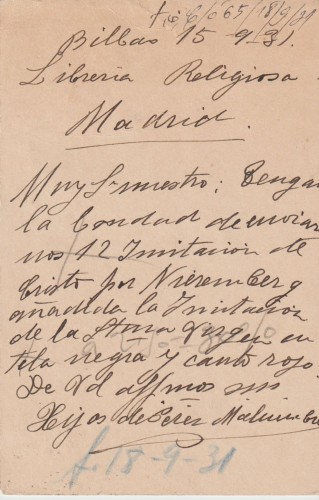 Bilbao 15-9-31.
Libreria Religiosa
Madrid.
Muy Sr nuestro; Tengan
la bondad de enviar
nos 12 Imitacion de
Cristo por Nieremberg
añadida la Imitacion
de la Sma Virgen en
tela negra y canto rojo
De Vd affmos ss
Hijos de Pérez
f. 18-9-31